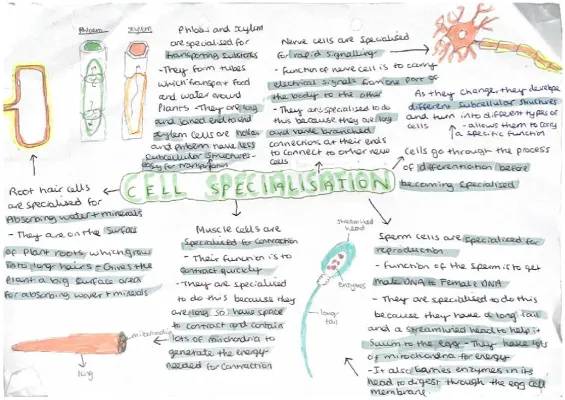 Phloem
Xylem
Phloem and Xylem
are specialised for
transporting substances
- They form tubes
which transport food
and water around
plants - They are long
and joined end to end
Xylem cells are hollow
and phloem have less
Subcellular structures-
easy for transportation
Nerve cells are specialised
for rapid signalling
- Function of nerve cell is to carry
electrical signals from one part of
the body to the other
- They are specialised to do
this because they are long
and have branched
connections at their ends
to connect to other nerve
cells
As they change, they develop
different subcellular structures
and turn into different types of
cells
- allows them to carry
a specific function
Cells go through the process
of differentiation before
becoming specialised
CELL SPECIALISATION
Root hair cells
are specialised for
Absorbing water + minerals
- They are on the surface
of plant roots, which grow
into long hairs + Gives the
plant a big surface area
for absorbing water + minerals
Muscle cells are
Specialised for contraction
- Their function is to
contract quickly
- They are specialised
to do this because they
are long so have space
to contract and contain
lots of mitochondria to
generate the energy
needed for contraction
mitochondria
long
streamlined
head
enzymes
long
tail
Sperm cells are specialised for
reproduction
- Function of the sperm is to get
Male DNA to Female DNA
- They are specialised to do this
because they have a long tail
and a streamlined head to help it
Swim to the egg - They have lots
of mitochondria for energy
- It also carries enzymes in its
head to digest through the egg cell
membrane.